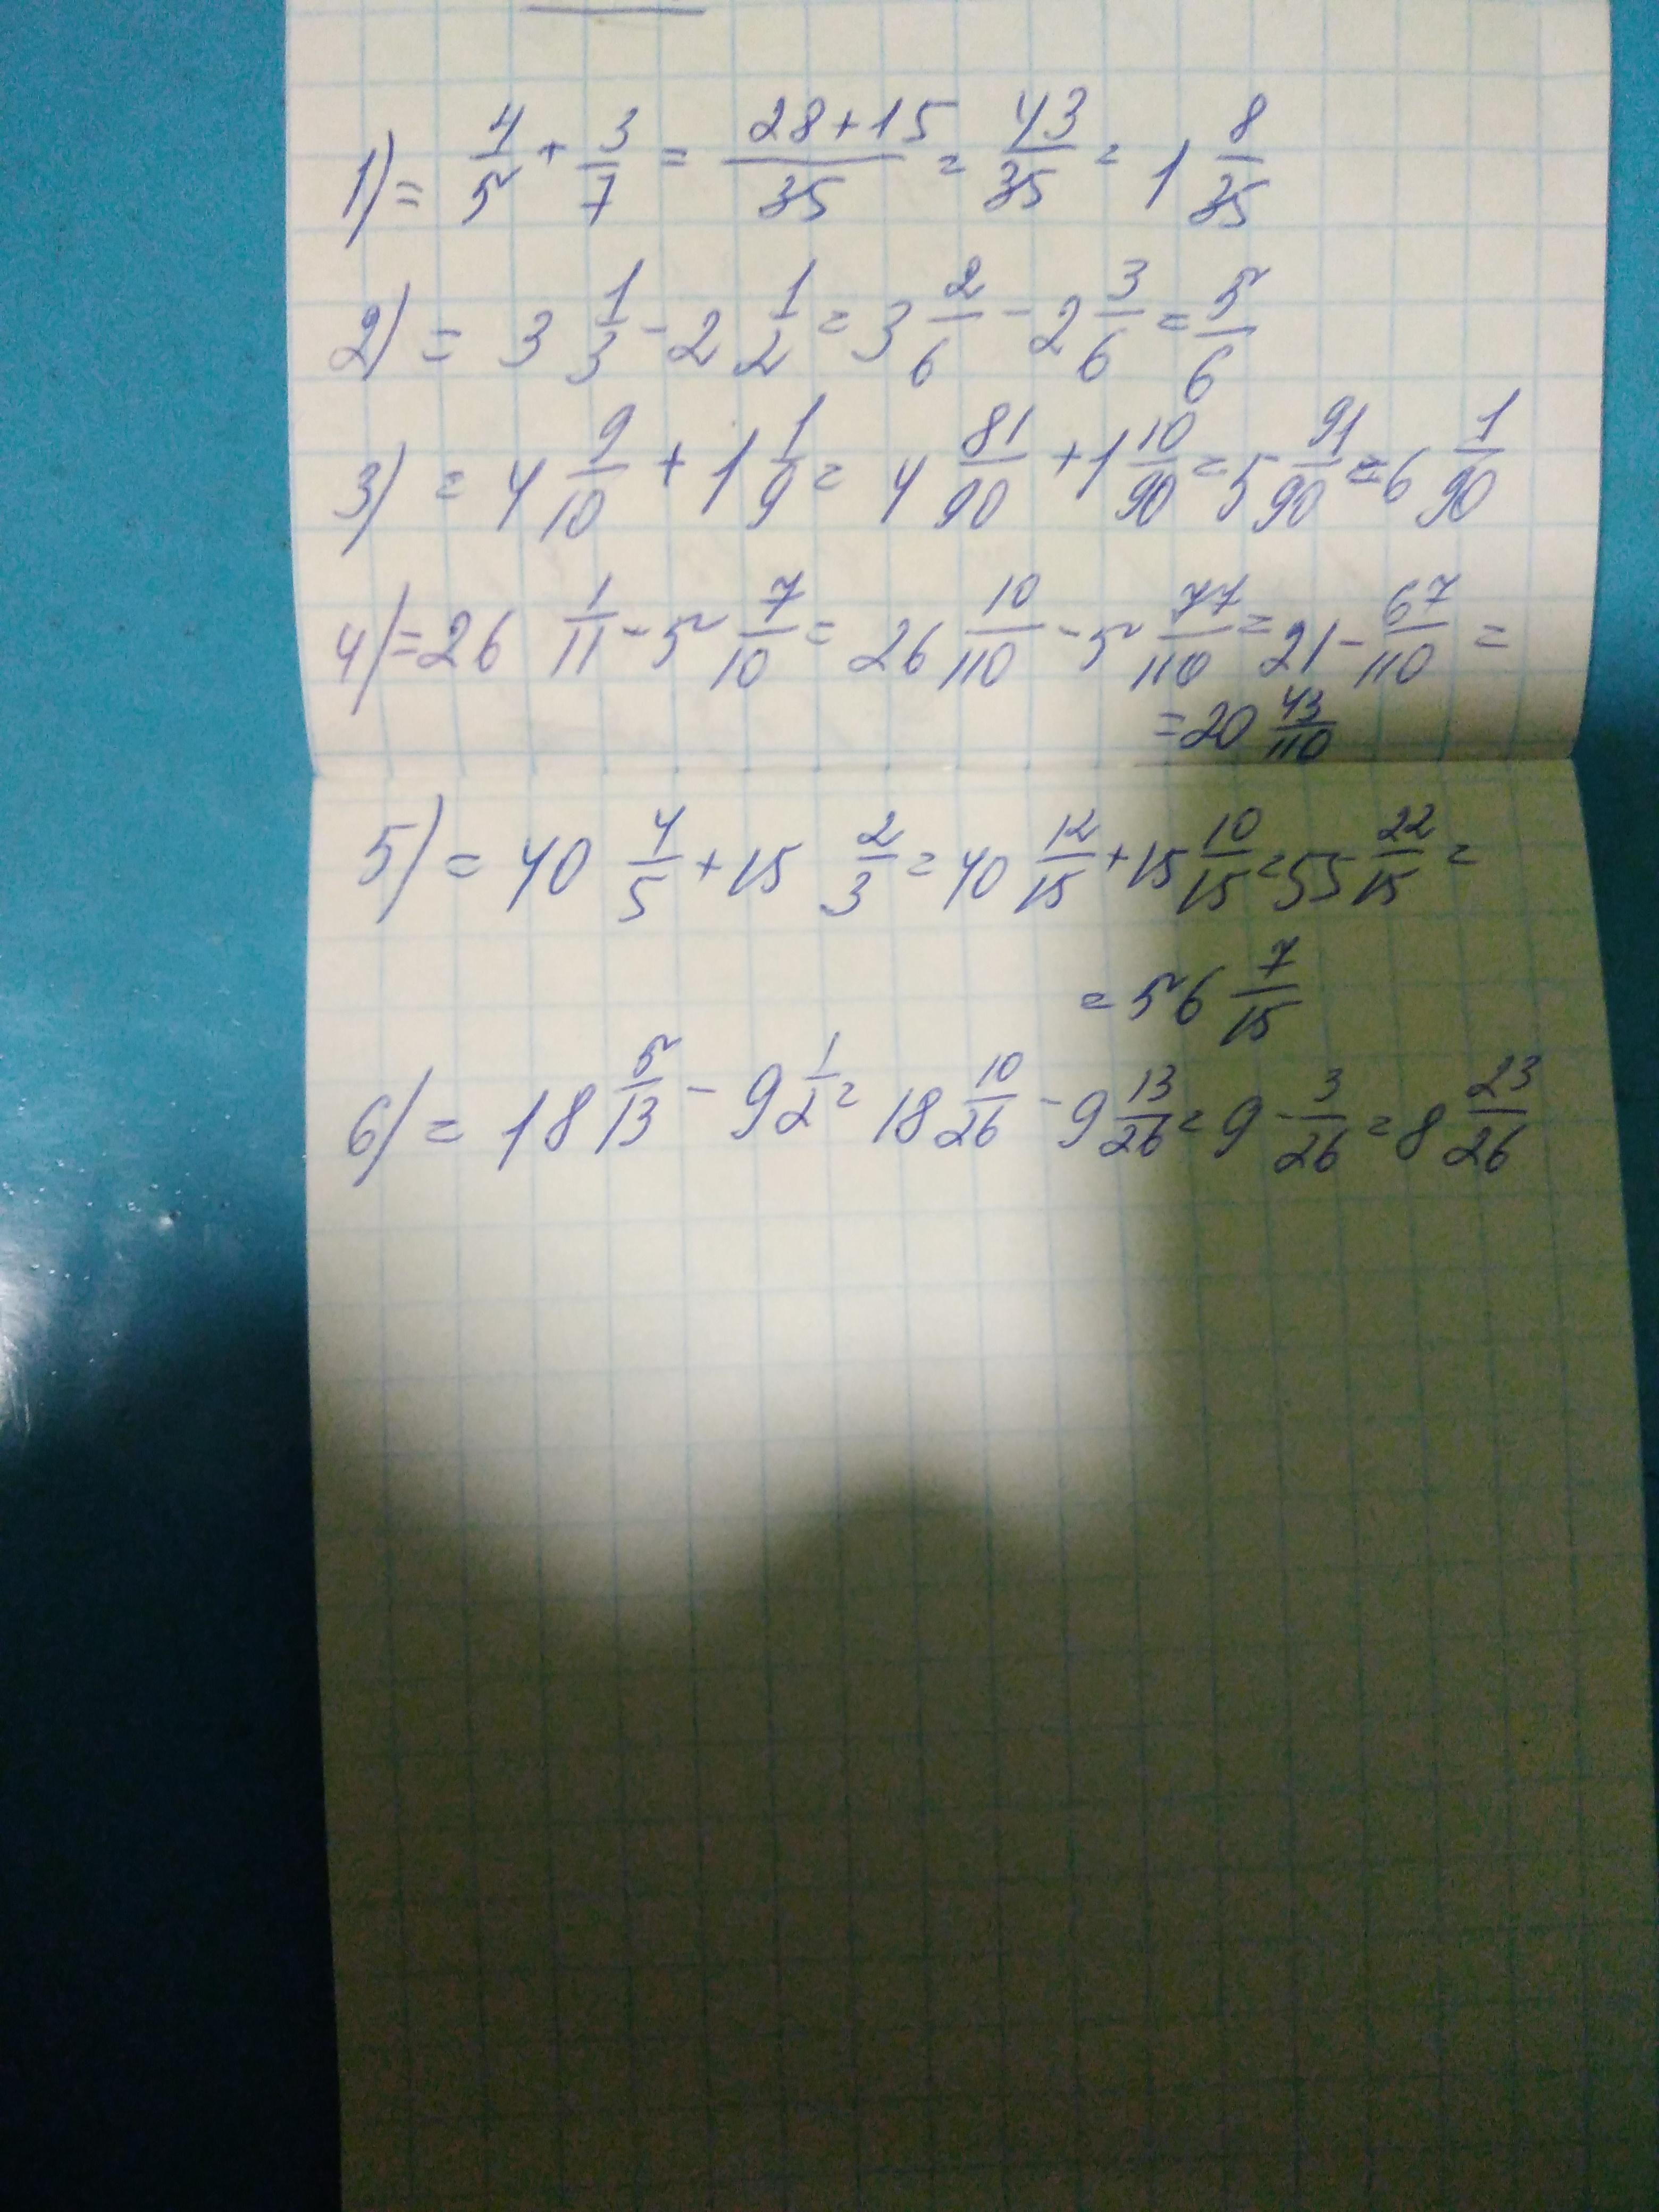 1) = 4/5 + 3/7 = (28+15)/35 = 43/35 = 1 8/35
2) = 3 1/3 - 2 1/2 = 3 2/6 - 2 3/6 = 5/6
3) = 4 9/10 + 1 1/9 = 4 81/90 + 1 10/90 = 5 91/90 = 6 1/90
4) = 26 1/11 - 5 7/10 = 26 10/110 - 5 77/110 = 21 - 67/110 =
= 20 43/110
5) = 40 4/5 + 15 2/3 = 40 12/15 + 15 10/15 = 55 22/15 =
= 56 7/15
6) = 18 5/13 - 9 1/2 = 18 10/26 - 9 13/26 = 9 - 3/26 = 8 23/26